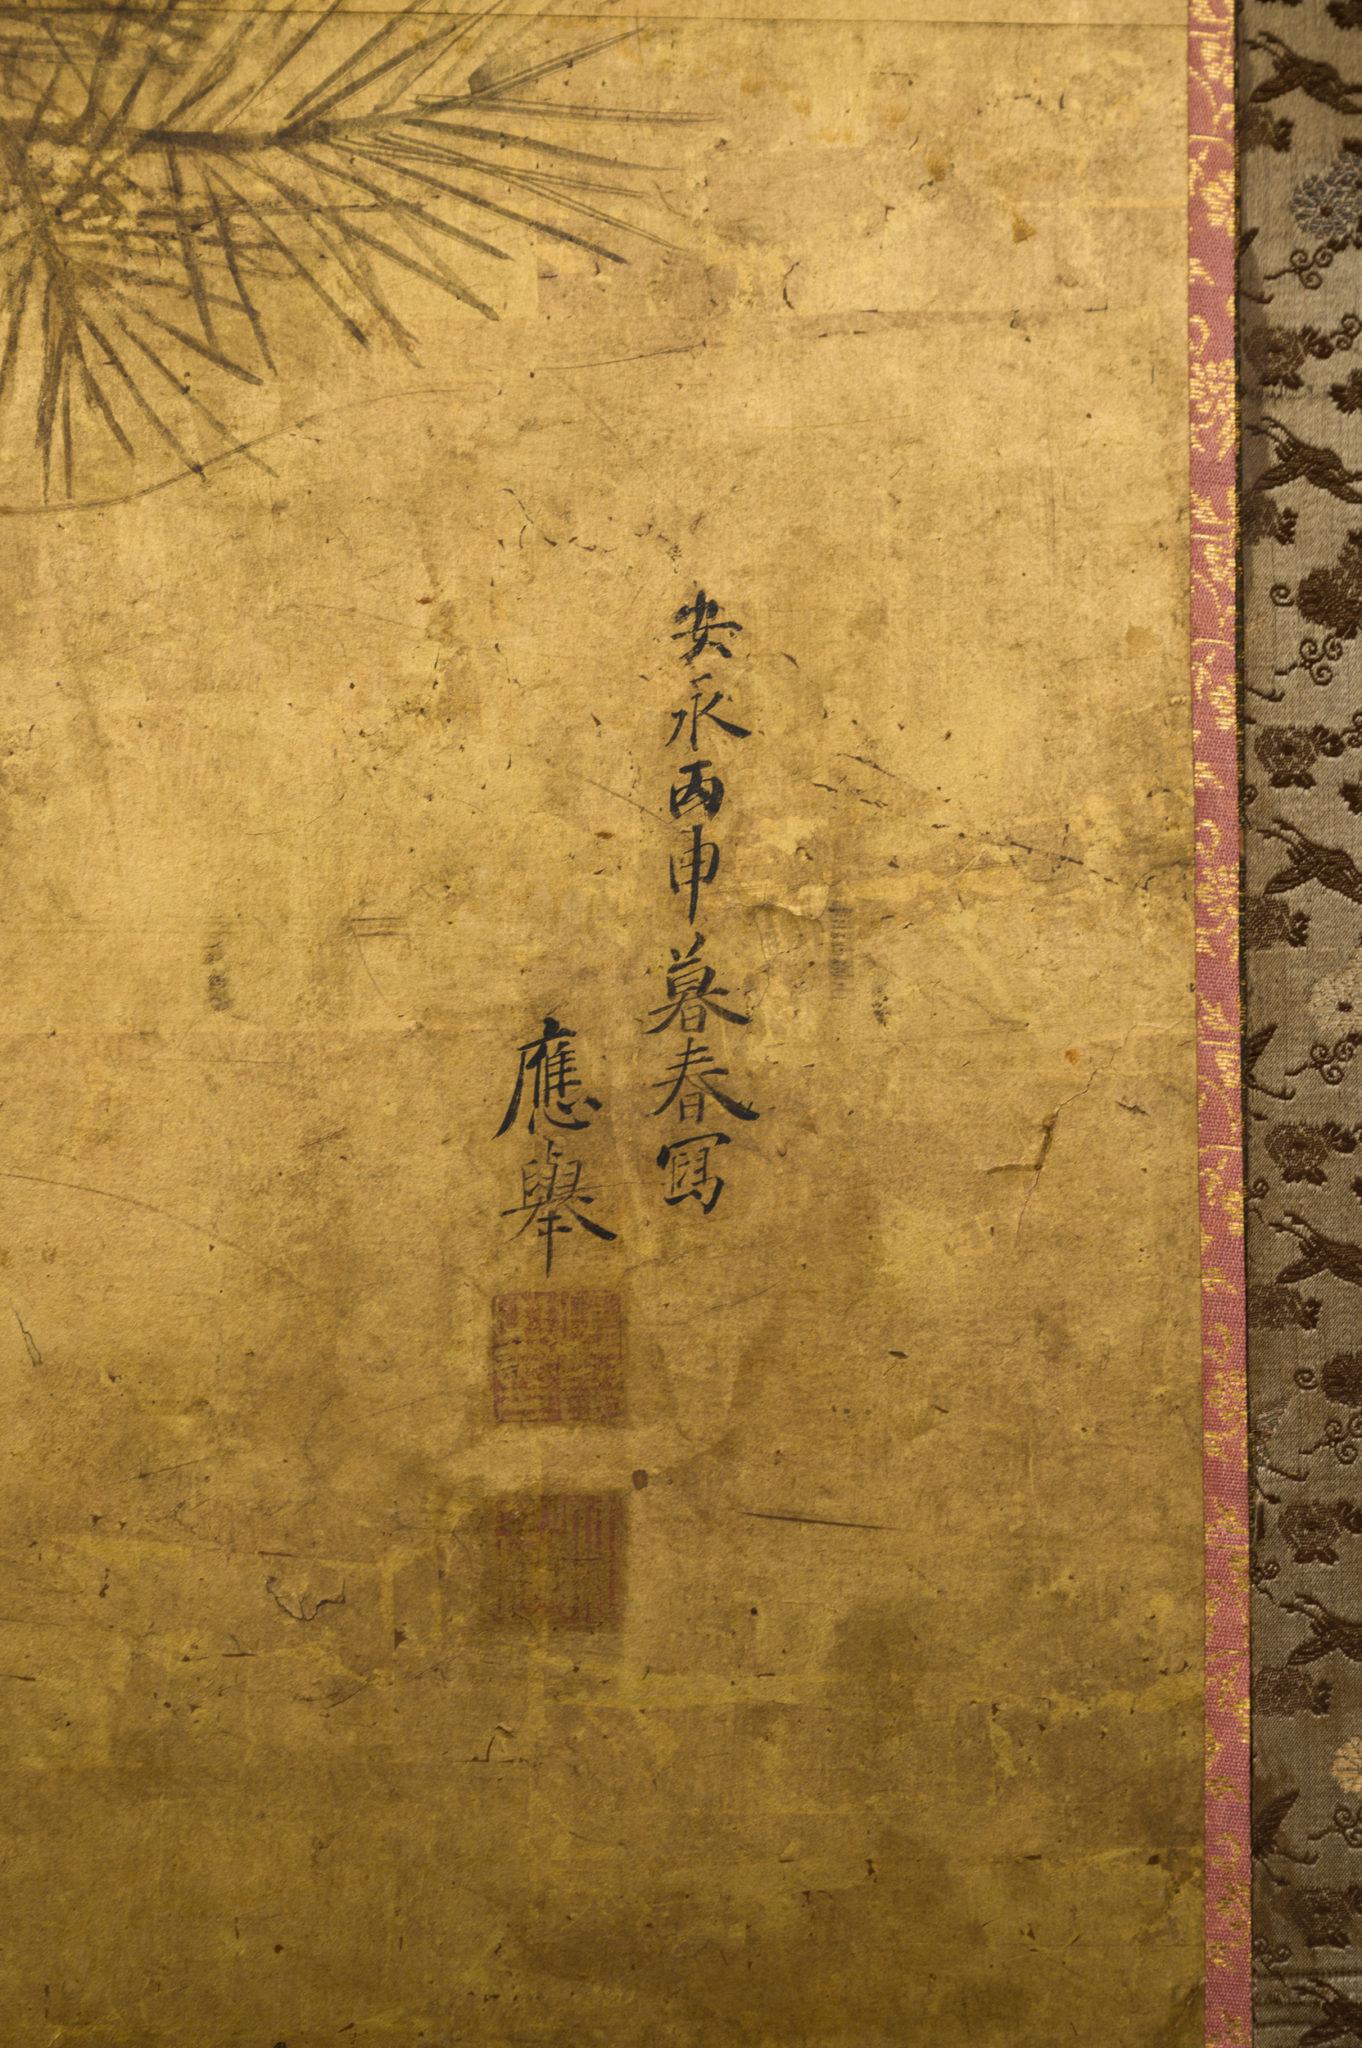 安永丙申暮春寫
應舉